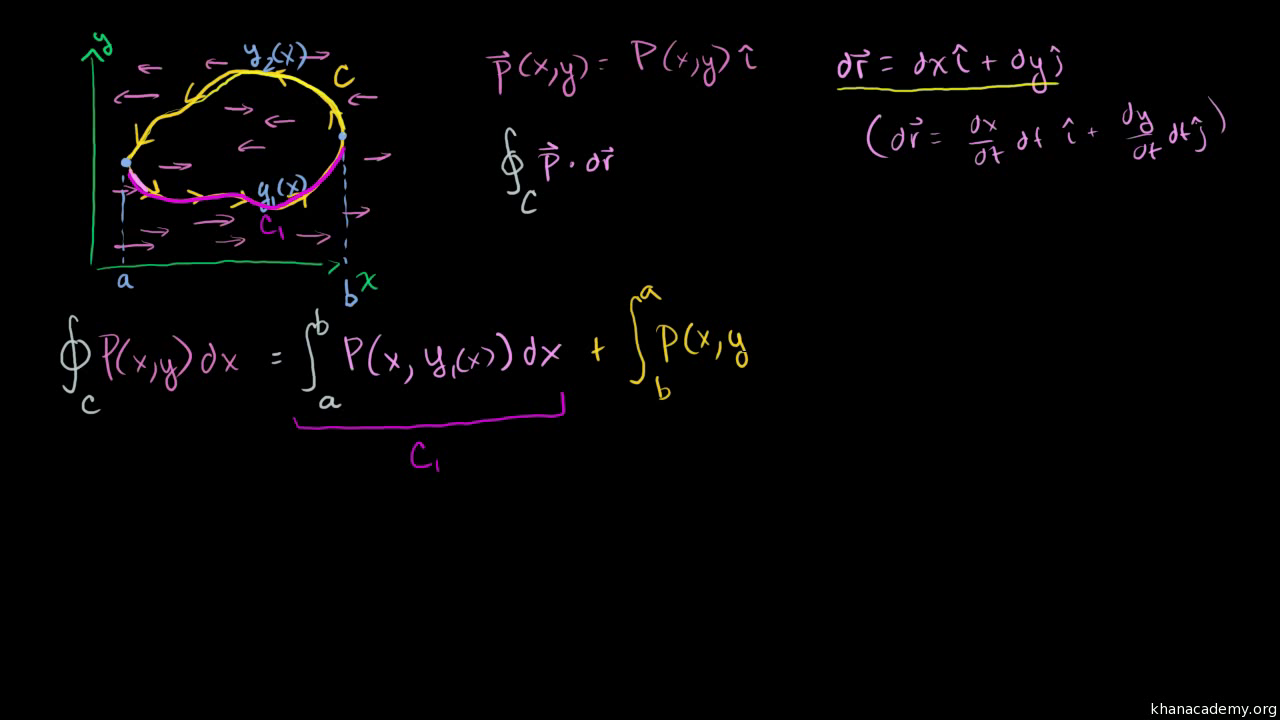 y
y₂(x)
C
y₁(x)
C₁
a
b
x
p⃗(x,y) = P(x,y) î
dr⃗ = dx î + dy ĵ
(dr⃗ = dx/dt dt î + dy/dt dt ĵ)
∮_C p⃗ · dr⃗
∮_C P(x,y) dx = ∫_a^b P(x, y₁(x)) dx + ∫_b^a P(x, y
C₁
khanacademy.org